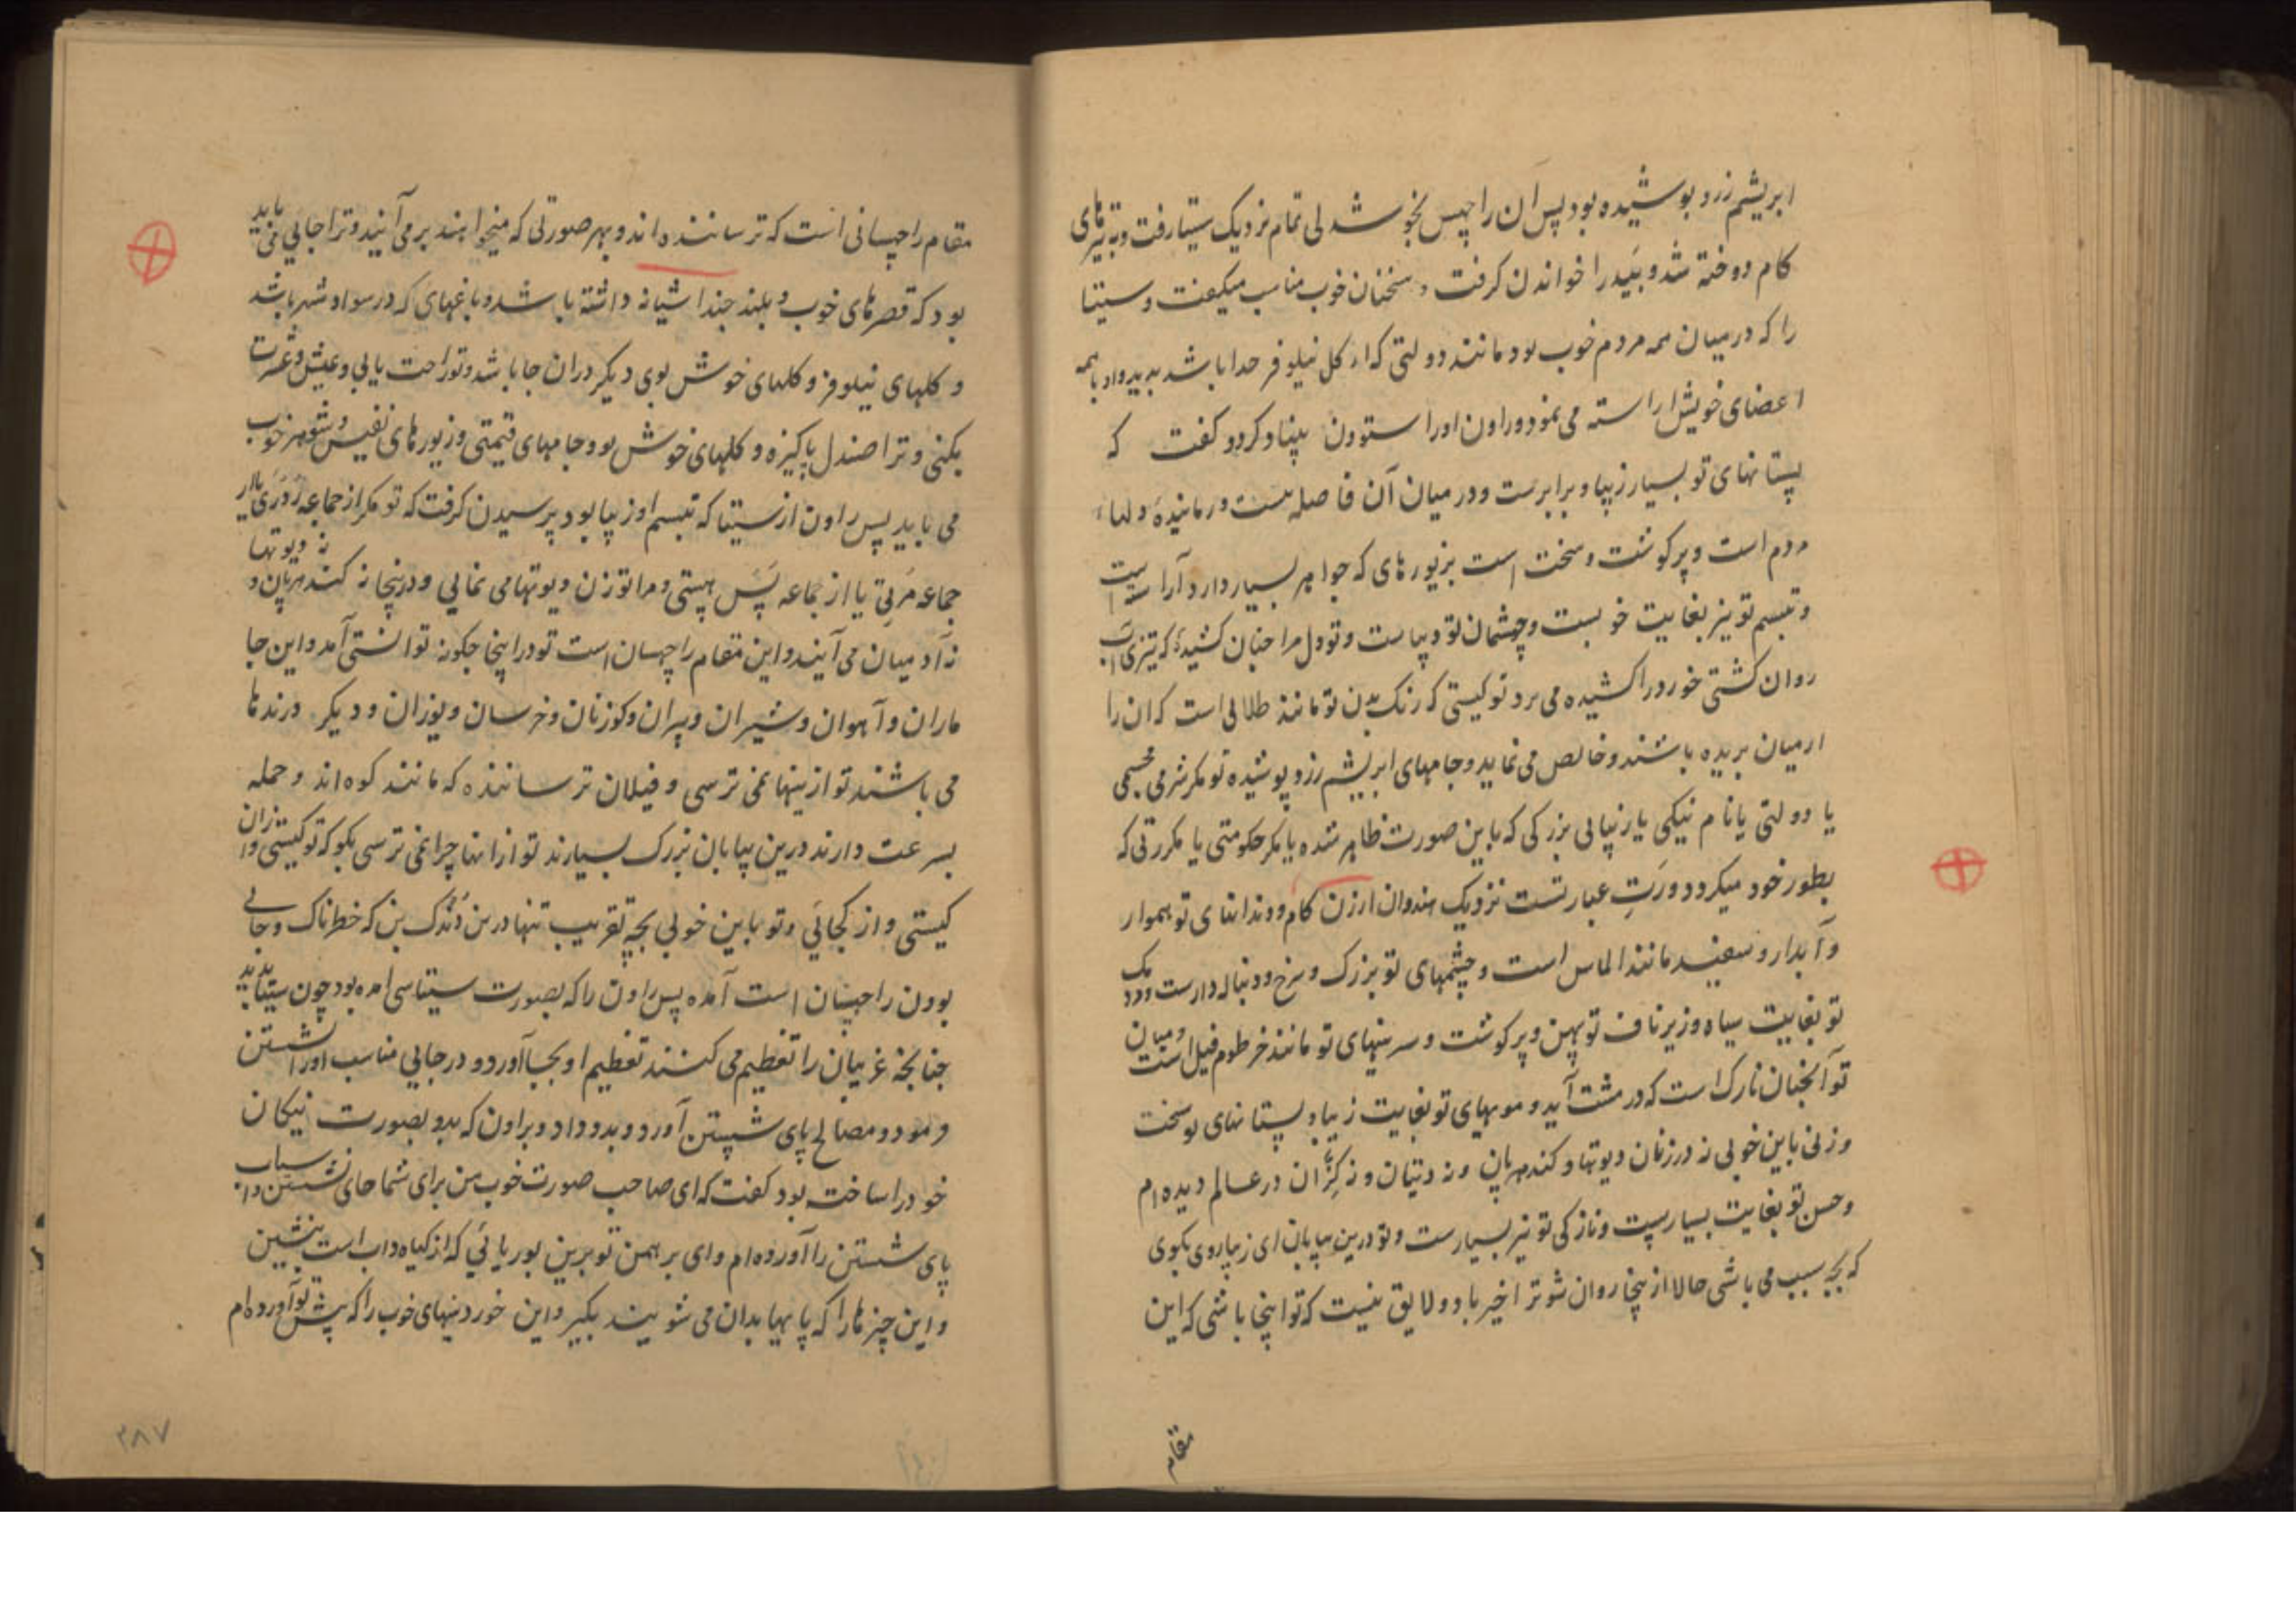 ابریشم زرد پوشیده بود پس آن راچهس بخوشدلی تمام نزدیک سیتا رفت و به تیرهای
کام دوخته شد و بید را خواندن کرفت و سخنان خوب مناسب میکفت و سیتا
را که درمیان همه مردم خوب بود مانند دولتی که از کل نیلوفر جدا باشد بدید و او با همه
اعضای خویش اراسته می نمود و راون اورا ستودن بنیاد کرد و کفت که
پستانهای تو بسیار زیبا و برابرست و درمیان آن فاصله نیست و رمانیدهٔ دلهاء
مردم است و پر کوشت و سخت است بزیورهای که جواهر بسیار دارد آراسته است
و تبسم تو نیز بغایت خوبست و چشمان تو زیباست و تو دل مرا چنان کشیدهٔ که تیزی آب
روان کشتی خورد را کشیده می برد تو کیستی که رنک بدن تو مانند طلائی است که ان را
ازمیان بریده باشند و خالص می نماید و جامهای ابریشم زرد پوشیده تو مکر شرمی مجسمی
یا دولتی یا نام نیکی یا زیبایی بزرکی که باین صورت ظاهر شده یا مکر حکومتی یا مکر رتی که
بطور خود میکردد و رَتِ عبارتست نزدیک هندوان اززن کام و دندانهای تو هموار
و آبدار و سفید مانند الماس است و چشمهای تو بزرک و سرخ و دنباله دارست و مردمک
تو بغایت سیاه و زیر ناف تو پهن و پر کوشت و سرینهای تو مانند خرطوم فیل است و میان
تو آنچنان نازک است که در مشت آید و مویهای تو بغایت زیبا و پستانهای تو سخت
و زنی باین خوبی نه در زنان دیوتها و کندهرپان و نه دیتیان و نه کنّران در عالم دیده ام
و حسن تو بغایت بسیارست و نازکی تو نیز بسیارست و تو درین بیابان ای زیباروی بکوی
که بچه سبب می باشی حالا از ینجا روان شو ترا خیر باد و لایق نیست که تو اینجا باشی که این
مقام
مقام راچهسانی است که ترساننده اند و بهر صورتی که میخواهند بر می آیند و ترا جایی می باید
بود که قصرهای خوب و بلند چند اشیانه داشته باشد و باغهای که در سواد شهر باشد
و کلهای نیلوفر و کلهای خوش بوی دیکر دران جا باشد و تو راحت یابی و عیش و عشرت
بکنی و ترا صندل پاکیزه و کلهای خوش بو و جامهای قیمتی و زیورهای نفیس و شوهر خوب
می باید پس راون از سیتا که تبسم او زیبا بود پرسیدن کرفت که تو مکر از جماعه رُدرَی یا از
جماعه مَرتِی یا از جماعه بَسَ هستی و مرا تو زن دیوتها می نمایی و درینجا نه کندهرپان و نه دیوتها
نه آدمیان می آیند و این مقام راچهسان است تو دراینجا چکونه توانستی آمد و این جا
ماران و آهوان و شیران و ببران و کوزنان و خرسان و یوزان و دیکر درندها
می باشند تو ازینها نمی ترسی و فیلان ترساننده که مانند کوه اند و حمله
بسرعت دارند درین بیابان بزرک بسیارند تو ازانها چرا نمی ترسی بکو که تو کیستی و ازان
کیستی و از کجائی و تو باین خوبی بچه تقریب تنها درین دَندَک بن که خطرناک و جایی
بودن راچهسان است آمده پس راون را که بصورت سنیاسی آمده بود چون سیتا بدید
چنانچه غریبان را تعظیم می کنند تعظیم او بجا آورد و در جایی مناسب اورا نشستن
فرمود و مصالح پای شستن آورد و بدو داد و براون که بدو بصورت نیکان
خود را ساخته بود کفت که ای صاحب صورت خوب من برای شما جای نشستن و اسباب
پای شستن را آورده ام و ای برهمن تو برین بوریائی که از کیاه داب است بنشین
و این چیزها را که پایها بدان می شویند بکیر و این خوردنیهای خوب را که پیش تو آورده ام
۲۸۷